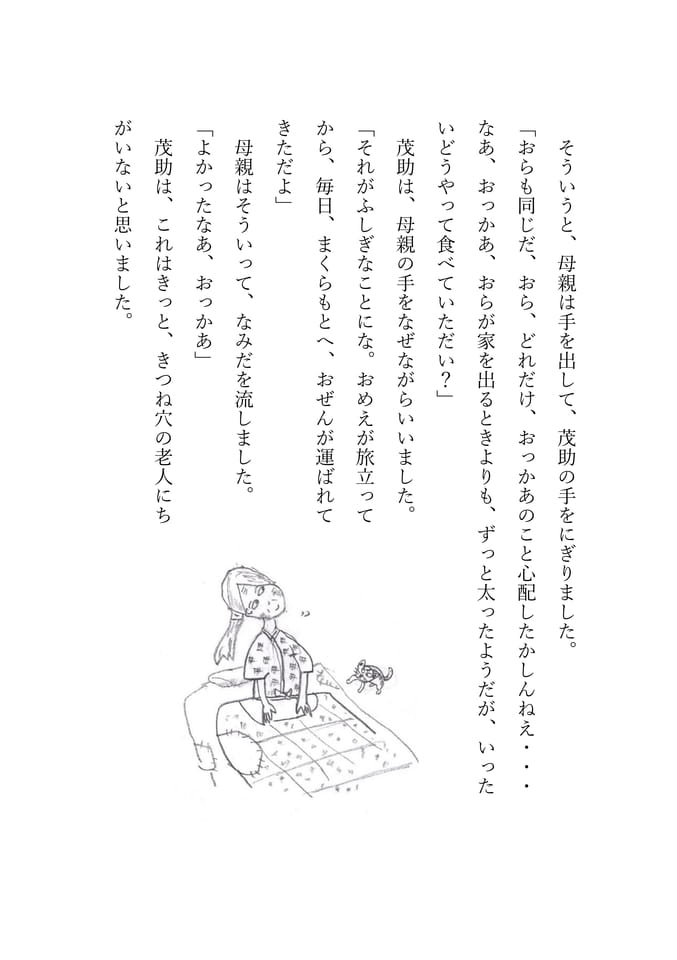 そういうと、母親は手を出して、茂助の手をにぎりました。
「おらも同じだ、おら、どれだけ、おっかあのこと心配したかしんねえ・・・
なあ、おっかあ、おらが家を出るときよりも、ずっと太ったようだが、いった
いどうやって食べていただい？」
茂助は、母親の手をなぜながらいいました。
「それがふしぎなことにな。おめえが旅立って
から、毎日、まくらもとへ、おぜんが運ばれて
きただよ」
母親はそういって、なみだを流しました。
「よかったなあ、おっかあ」
茂助は、これはきっと、きつね穴の老人にち
がいないと思いました。